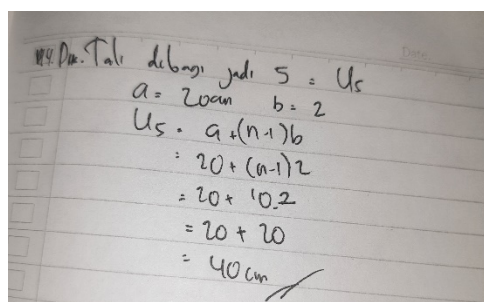 Dik. Tali dibagi jadi 5 = U5
a = 20cm b = 2
U5 = a+(n-1)b
= 20+(n-1)2
= 20+ 10.2
= 20 + 20
= 40 cm